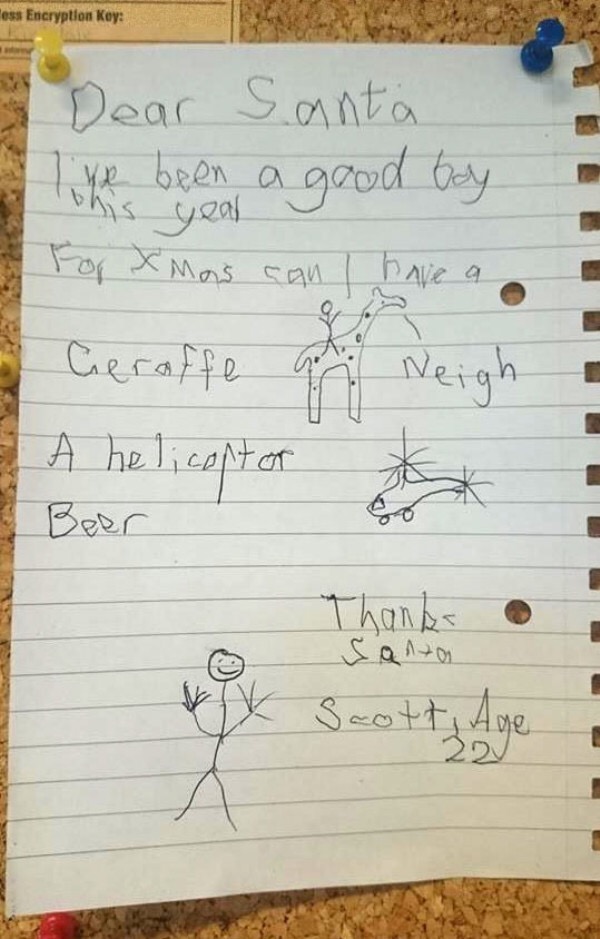 less Encryption Key:
Dear Santa
I've been a good boy
this year
For Xmas can I have a
Geraffe
Neigh
A helicoptor
Beer
Thanks
Santa
Scott, Age
22